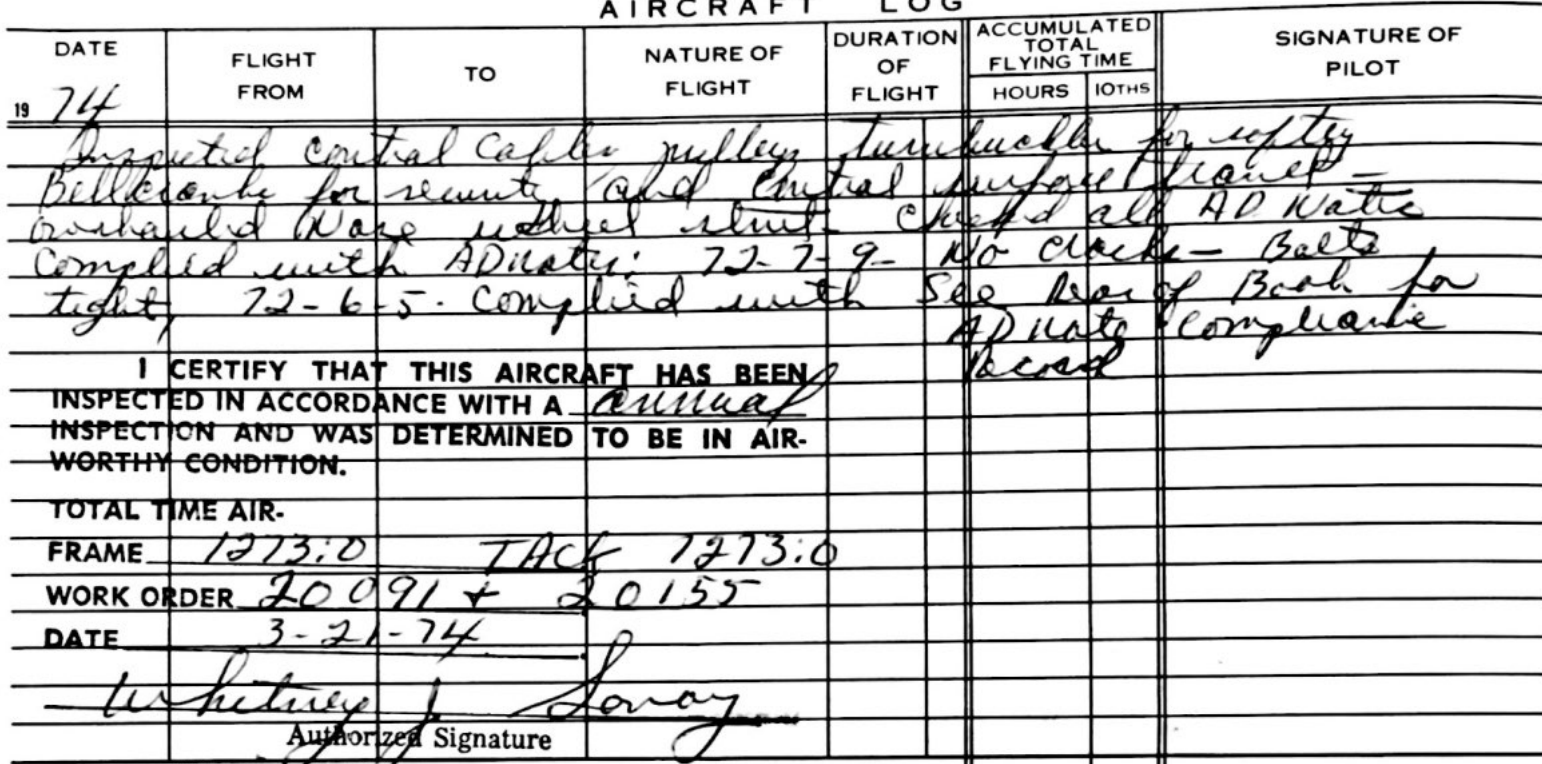 AIRCRAFT LOG
DATE
19 74
FLIGHT FROM
TO
NATURE OF FLIGHT
DURATION OF FLIGHT
ACCUMULATED TOTAL FLYING TIME
HOURS 10THS
SIGNATURE OF PILOT
Inspected control Cables pulleys turnbuckles for safety
Bellcranks for security and Control surface travel -
overhauled Nose wheel strut. Checked all AD Notes
Complied with AD Note: 72-7-9- No cracks - Bolts
tight, 72-6-5. Complied with See Rear of Book for
AD Note Compliance
Record
I CERTIFY THAT THIS AIRCRAFT HAS BEEN
INSPECTED IN ACCORDANCE WITH A annual
INSPECTION AND WAS DETERMINED TO BE IN AIR-
WORTHY CONDITION.
TOTAL TIME AIR-
FRAME 1273:0 TACK 1273:0
WORK ORDER 20091 + 20155
DATE 3-21-74
Whitney J.
Authorized Signature